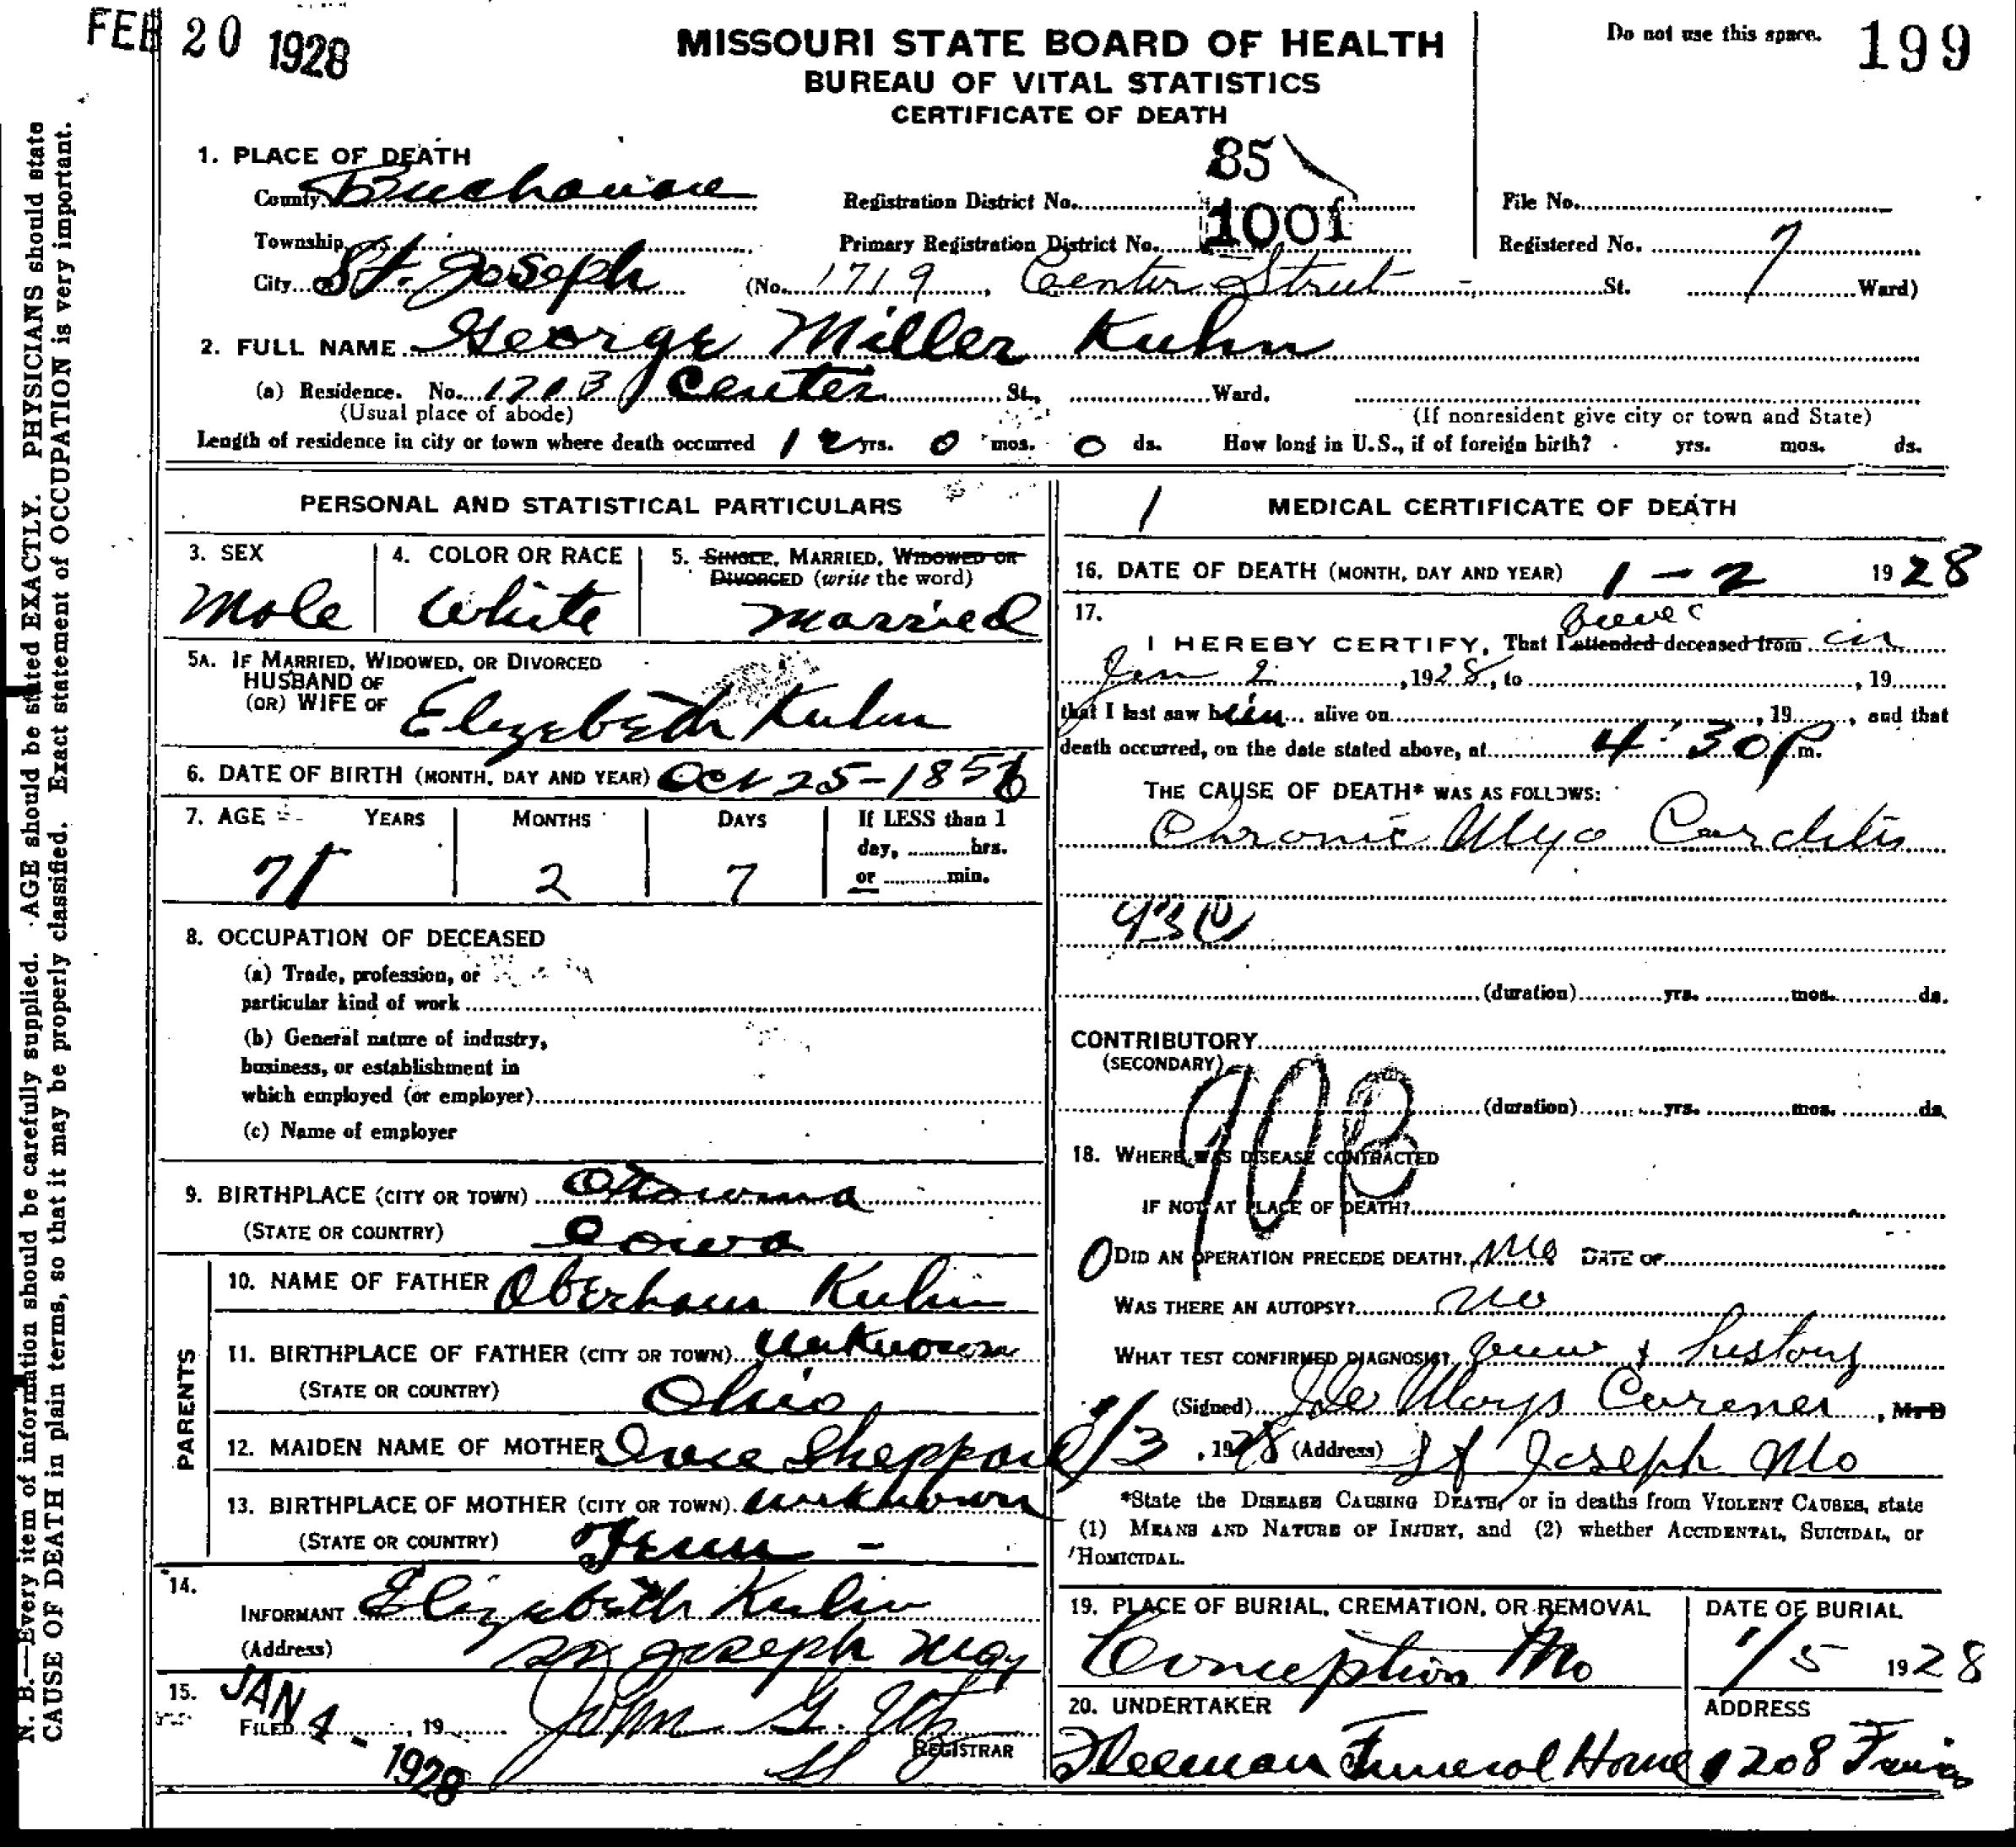 FEB 20 1928
MISSOURI STATE BOARD OF HEALTH
BUREAU OF VITAL STATISTICS
CERTIFICATE OF DEATH
Do not use this space. 199
1. PLACE OF DEATH
County Buchanan Registration District No. 85 File No.
Township Primary Registration District No. 1001 Registered No. 7
City St. Joseph (No. 1719, Center Street St. Ward)
2. FULL NAME George Miller Kuhn
(a) Residence. No. Center St., Ward.
(Usual place of abode) (If nonresident give city or town and State)
Length of residence in city or town where death occurred 12 yrs. 0 mos. 0 ds. How long in U.S., if of foreign birth? yrs. mos. ds.
PERSONAL AND STATISTICAL PARTICULARS
3. SEX 4. COLOR OR RACE 5. SINGLE, MARRIED, WIDOWED OR
DIVORCED (write the word)
Male White Married
5A. IF MARRIED, WIDOWED, OR DIVORCED
HUSBAND OF
(OR) WIFE OF Elizabeth Kuhn
6. DATE OF BIRTH (MONTH, DAY AND YEAR) Oct 25-1856
7. AGE YEARS MONTHS DAYS If LESS than 1
day, hrs.
or min.
71 2 7
8. OCCUPATION OF DECEASED
(a) Trade, profession, or
particular kind of work
(b) General nature of industry,
business, or establishment in
which employed (or employer)
(c) Name of employer
9. BIRTHPLACE (CITY OR TOWN) Otowma
(STATE OR COUNTRY) Iowa
PARENTS
10. NAME OF FATHER Kuhn
11. BIRTHPLACE OF FATHER (CITY OR TOWN) Unknown
(STATE OR COUNTRY) Ohio
12. MAIDEN NAME OF MOTHER Sheppard
13. BIRTHPLACE OF MOTHER (CITY OR TOWN) Unknown
(STATE OR COUNTRY) Tenn -
14.
INFORMANT Elizabeth Kuhn
(Address) St Joseph
15. JAN 4 - 1928
FILED, 19 John G.
REGISTRAR
1 MEDICAL CERTIFICATE OF DEATH
16. DATE OF DEATH (MONTH, DAY AND YEAR) 1-2 1928
17.
I HEREBY CERTIFY, That I attended deceased from
Jan 2, 1928, to, 19
that I last saw him alive on, 19, and that
death occurred, on the date stated above, at 4:30 P m.
THE CAUSE OF DEATH* WAS AS FOLLOWS:
Chronic Myo Carditis
(duration) yrs. mos. ds.
CONTRIBUTORY
(SECONDARY)
90B
(duration) yrs. mos. ds.
18. WHERE WAS DISEASE CONTRACTED
IF NOT AT PLACE OF DEATH?
DID AN OPERATION PRECEDE DEATH? No DATE OF
WAS THERE AN AUTOPSY? No
WHAT TEST CONFIRMED DIAGNOSIS? & history
(Signed) Coroner, M. D
1/3, 1928 (Address) St Joseph Mo
*State the DISEASE CAUSING DEATH, or in deaths from VIOLENT CAUSES, state
(1) MEANS AND NATURE OF INJURY, and (2) whether ACCIDENTAL, SUICIDAL, or
HOMICIDAL.
19. PLACE OF BURIAL, CREMATION, OR REMOVAL DATE OF BURIAL
Conception Mo 1/5 1928
20. UNDERTAKER ADDRESS
Fleeman Funeral Home 1208
N. B.—Every item of information should be carefully supplied. AGE should be stated EXACTLY. PHYSICIANS should state
CAUSE OF DEATH in plain terms, so that it may be properly classified. Exact statement of OCCUPATION is very important.